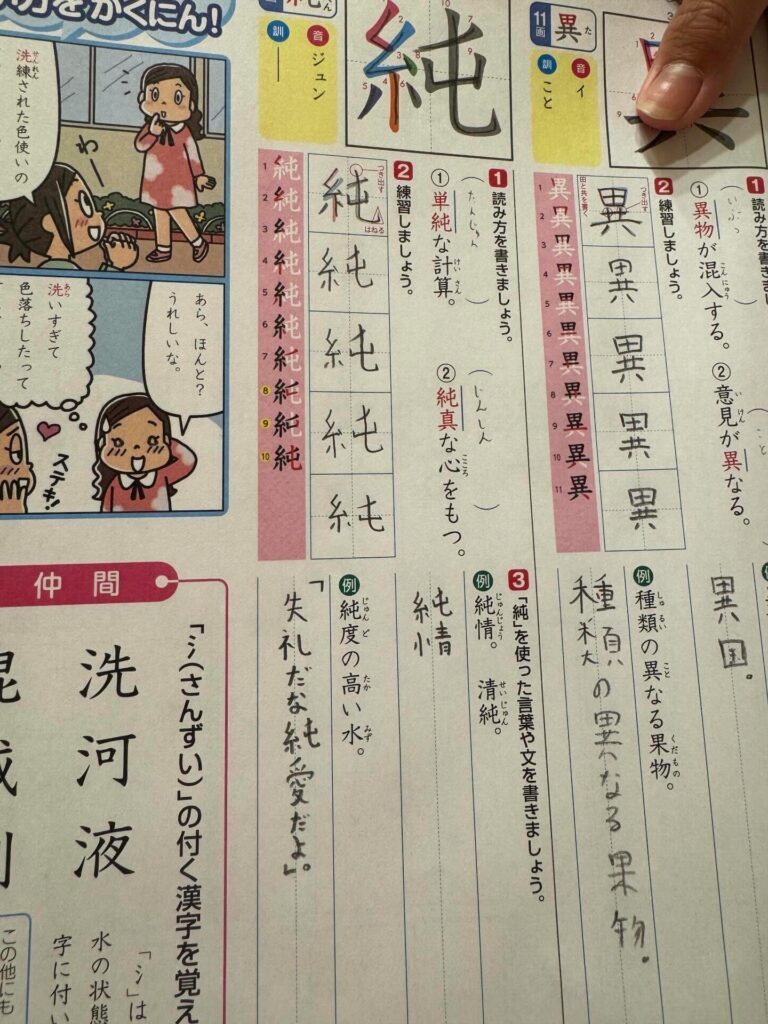 11画
異
た
音
イ
訓
こと
1 読み方を書きましょう。
① 異物が混入する。
こんにゅう
いぶつ
② 意見が異なる。
いけん
こと
2 練習しましょう。
つき出す
田と共を書く
異 異 異 異 異 異 異 異 異 異 異
1 2 3 4 5 6 7 8 9 10 11
異
異
異
異
異
異国。
例 種類の異なる果物。
しゅるい
こと
くだもの
種類の異なる果物。
純
音
ジュン
訓
―
1 読み方を書きましょう。
① 単純な計算。
けいさん
たんじゅん
② 純真な心をもつ。
こころ
じんしん
2 練習しましょう。
つき出す
はねる
純 純 純 純 純 純 純 純 純 純
1 2 3 4 5 6 7 8 9 10
純
純
純
純
純
3 「純」を使った言葉や文を書きましょう。
例 純情。 清純。
じゅんじょう
せいじゅん
純情
例 純度の高い水。
じゅんど
たか
みず
「失礼だな純愛だよ」。
をかくにん!
洗練された色使いの
せんれん
わー
あら、ほんと?
うれしいな。
洗いすぎて
あら
色落ちしたって
ステキ!!
仲間
「氵(さんずい)」の付く漢字を覚え
洗 河 液
「氵」は
水の状態
字に付い
この他にも